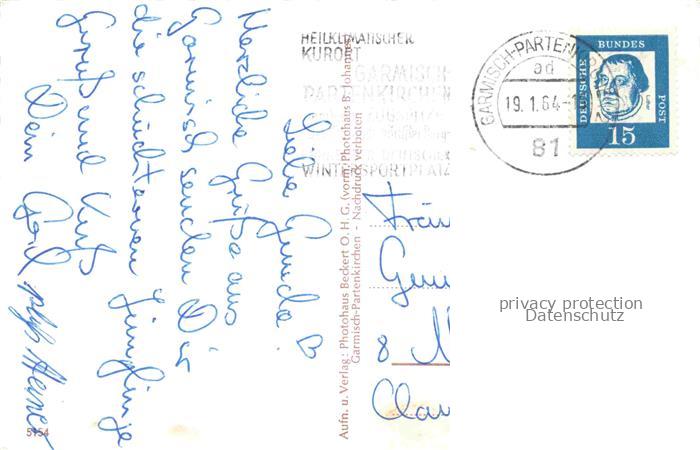 Liebe Gunda!
Herzliche Grüße aus
Garmisch senden Dir
die schüchternen Jünglinge
Gruß und Kuß
Dein
5154
Aufn. u. Verlag: Photohaus Beckert O.H.G. (vorm. Photohaus B. Johannes)
Garmisch-Partenkirchen - Nachdruck verboten
HEILKLIMATISCHER
KURORT
GARMISCH-
PARTENKIRCHEN
DEUTSCHER
WINTERSPORTPLATZ
GARMISCH-PARTENK
ad
19.1.64-
81
DEUTSCHE BUNDES POST
15
Fräu
Gun
8 M
Clau
privacy protection
Datenschutz